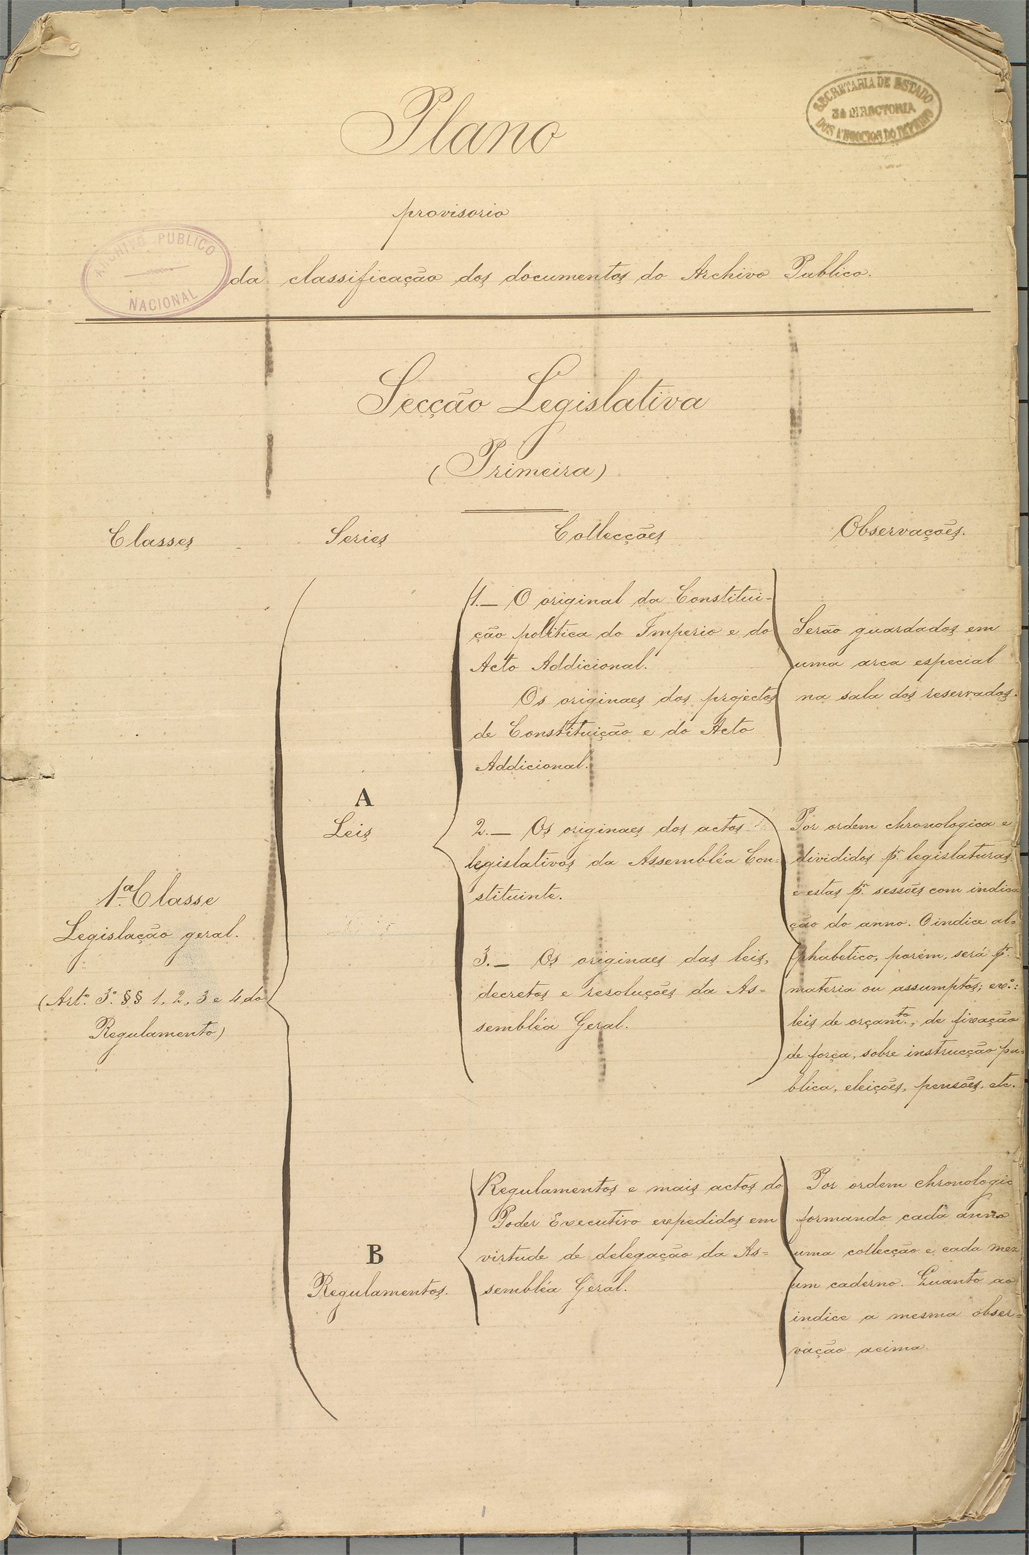 Plano
SECRETARIA DE ESTADO
3ª DIRECTORIA
DOS NEGOCIOS DO IMPERIO
provisorio
ARCHIVO PUBLICO
NACIONAL
da classificação dos documentos do Archivo Publico.
Secção Legislativa
(Primeira)
Classes Series Collecções Observações.
1ª Classe
Legislação geral.
(Art.º 3º §§ 1, 2, 3 e 4 do
Regulamento)
A
Leis
1.— O original da Constitui-
ção politica do Imperio e do
Acto Addicional.
Os originaes dos projectos
de Constituição e do Acto
Addicional.
Serão guardados em
uma arca especial
na sala dos reservados.
2.— Os originaes dos actos
legislativos da Assembléa Con-
stituinte.
3.— Os originaes das leis,
decretos e resoluções da As-
sembléa Geral.
Por ordem chronologica e
divididos pr. legislaturas
e estas pr. sessões com indica
ção do anno. O indice al-
phabetico, porém, será pr.
materia ou assumptos; ex.º:
leis de orçamto., de fixação
de força, sobre instrucção pu-
blica, eleições, pensões, etc.
B
Regulamentos.
Regulamentos e mais actos do
Poder Executivo expedidos em
virtude de delegação da As-
sembléa Geral.
Por ordem chronologic
formando cada anno
uma collecção e cada mez
um caderno. Quanto ao
indice a mesma obser-
vação acima.